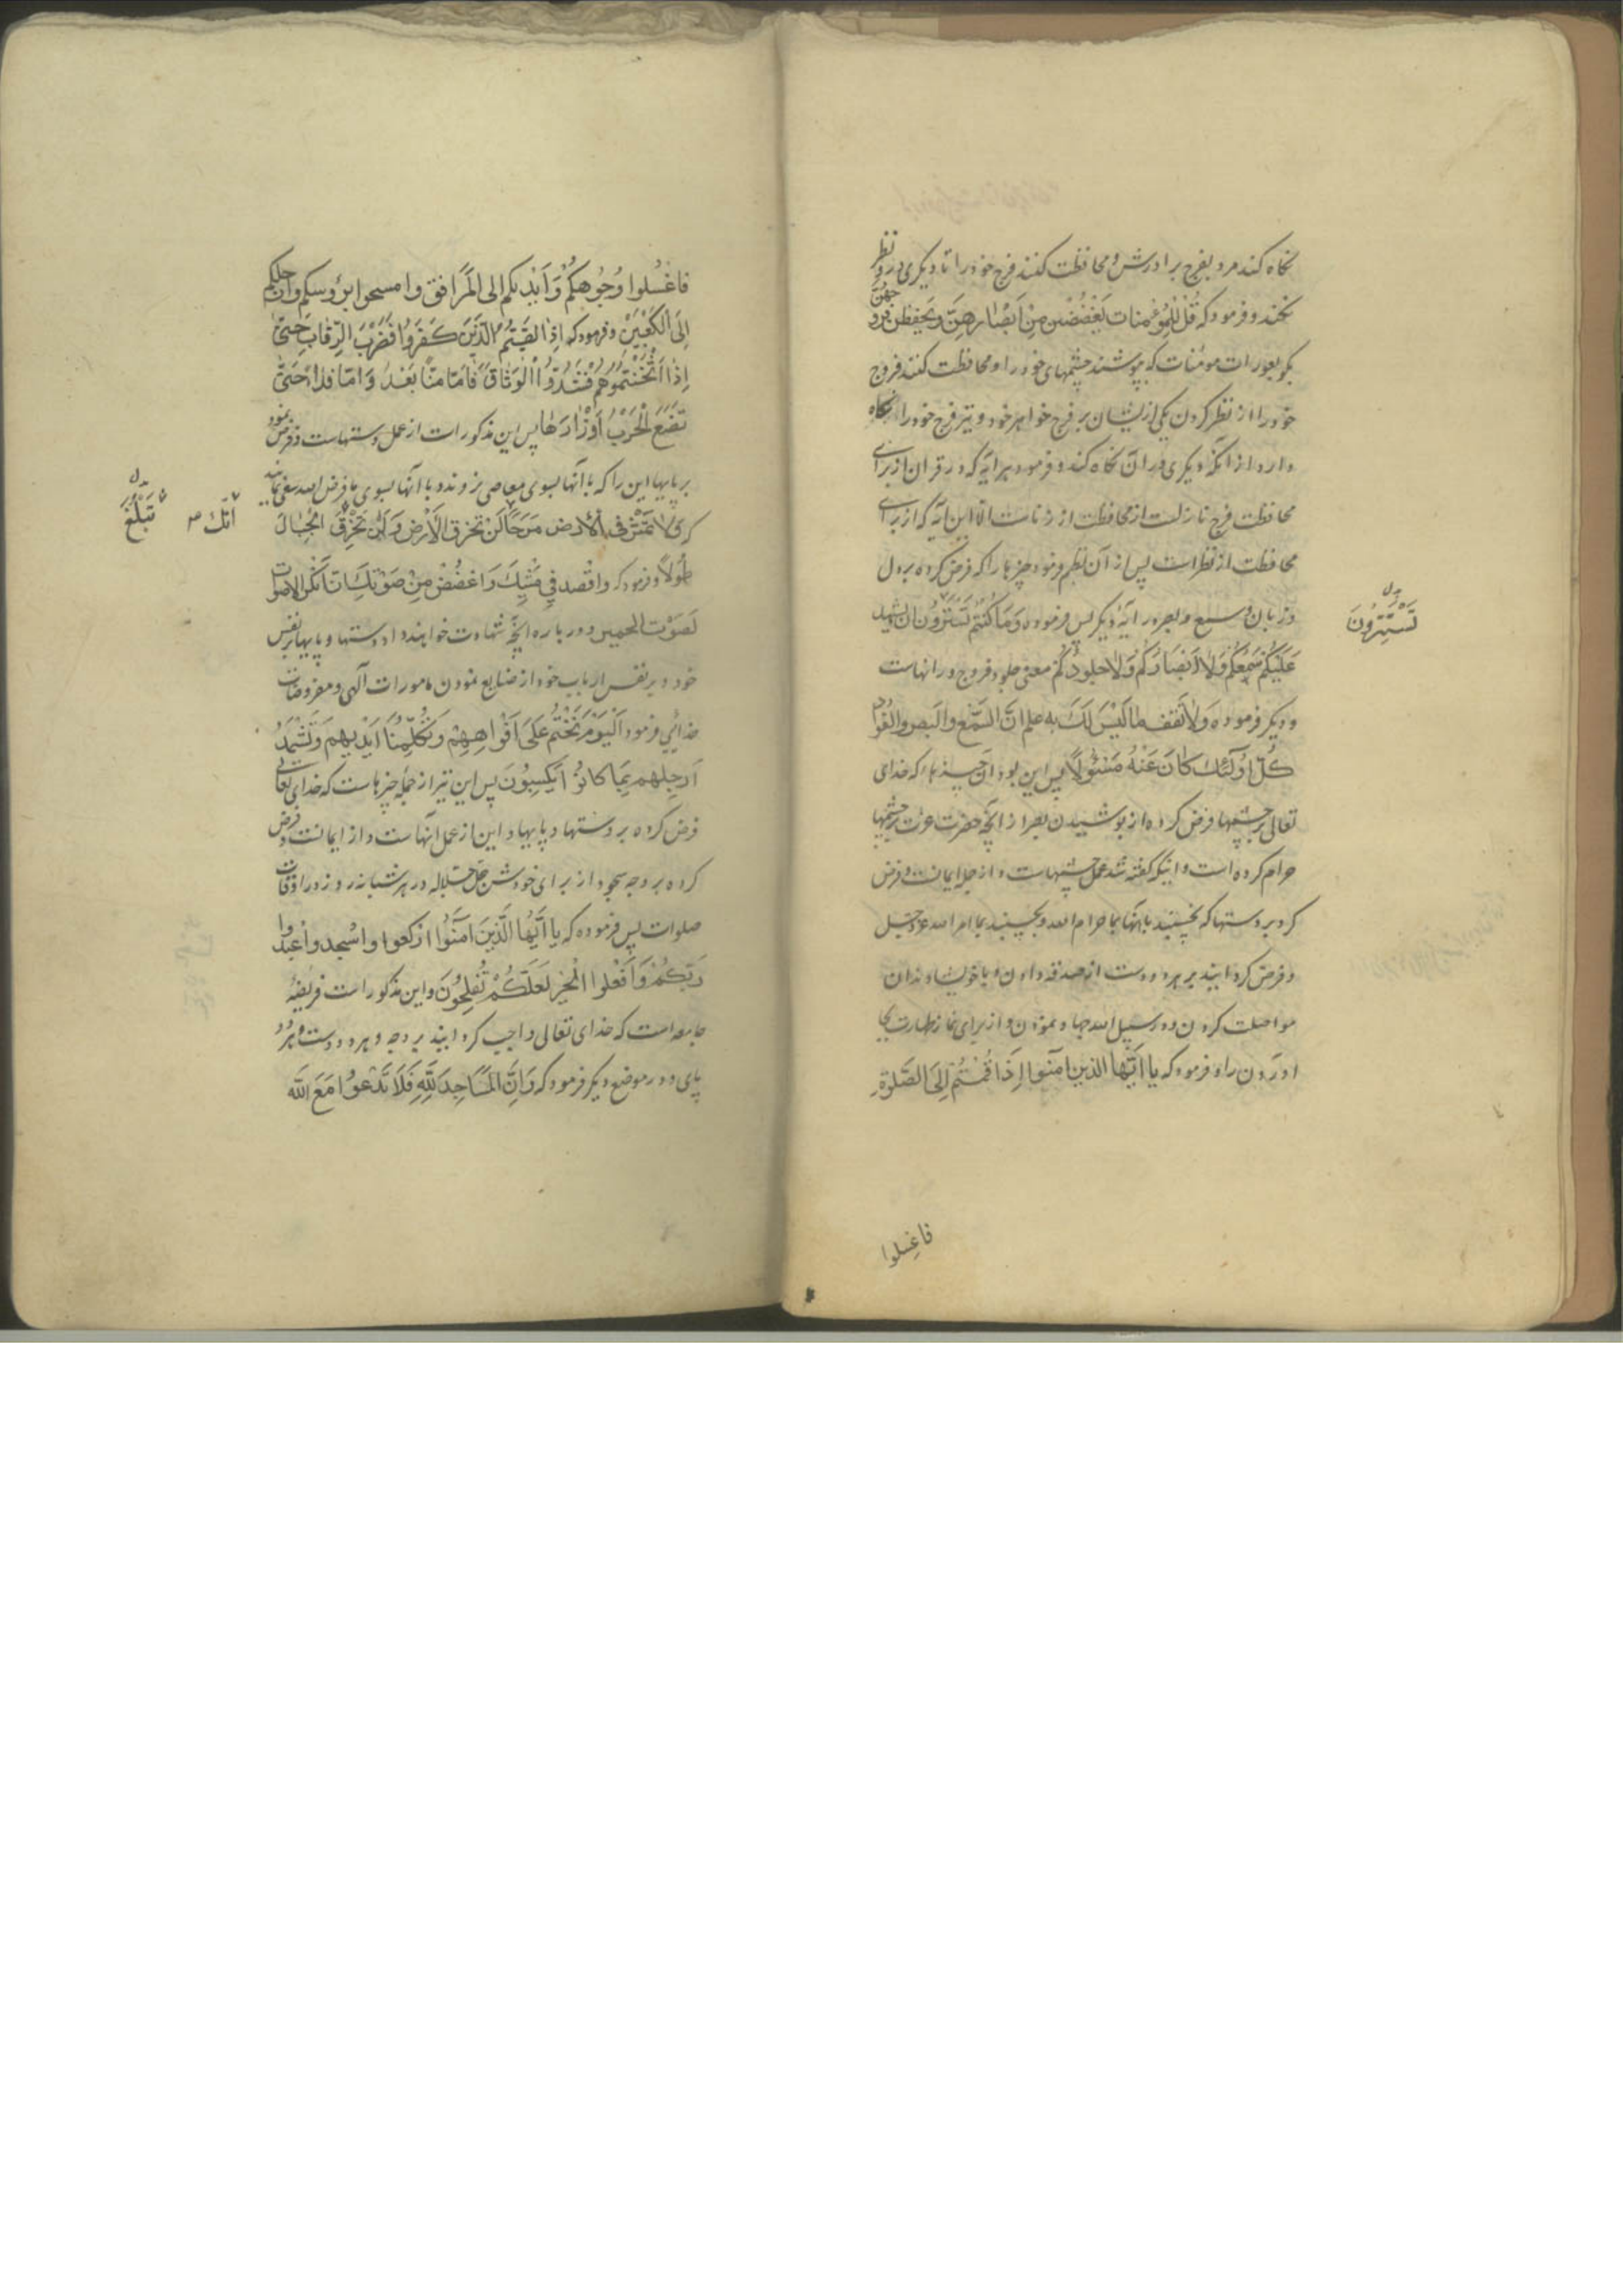 نکاه کند مرد بفرج برادرش و محافظت کنند فرج خود را تا دیکری در و نظر
نکند و فرمود که قُلْ لِلْمُؤمنات یَغْضُضْنَ مِنْ اَبْصَارِهِنَّ وَیَحْفَظْنَ فروجهُنَّ
بکو بعورات مومنات که بپوشند چشمهای خود را و محافظت کنند فروج
خود را از نظر کردن یکی از یشان بر فرج خواهر خود و نیز فرج خود را نکاه
دارد از انکه دیکری در ان نکاه کند و فرمود هر ایه که در قران از برای
محافظت فرج نازلست از محافظت از زناست الا این ایه که از برای
محافظت از نظر است پس از آن نظم فرمود چیزها را که فرض کرده بر دل
وزبان و سمع و بصر در ایهٔ دیکر پس فرموده وَمَا کُنْتُمْ تَسْتَتِرُونَ ان یشهد
تَسْتَتِرُونَ
بدل
عَلَیْکُمْ سَمْعُکُمْ وَلا اَبْصَارُکُمْ وَلا جلودُکُمْ معنی جلود فروج و رانهاست
و دیکر فرموده وَلا تَقفُ ما لَیْسَ لَكَ بِهِ علم اِنَّ السَّمْعَ والبَصر والفُؤاد
کُلُّ اُولٰئِكَ کَانَ عَنْهُ مَسْئُولاً پس این بود ان چیزها که خدای
تعالی بر چشمها فرض کرده از پوشیدن بصر از انچه حضرت عزت بر چشمها
حرام کرده است و اینکه کفته شد عمل چشمهاست و از جمله ایمانست و فرض
کرد بر دستها که نچسپند بانها بما حرام الله و بچسپند بما امر الله عز و جل
و فرض کردانید بر هر دو دست از صدقه دادن و با خویشاوندان
مواصلت کردن و در سبیل الله جهاد نمودن و از برای نماز طهارت بجا
اوردن را و فرمود که یا اَیُّهَا الذین امنوا اِذَا قُمْتُمْ اِلَی الصَّلوٰةِ
فاغسلوا
فَاغْسِلوا وُجُوهَکُمْ وَ اَیْدِیَکُم الی المَرَافِق وامسحوا برُؤسکم وارجلکم
اِلَی الْکَعْبَیْنِ و فرمود که اِذَا لَقِیتُمُ الَّذِینَ کَفَرُوا فَضَرْبَ الرِّقَابِ حَتّیٰ
اِذَا اَثْخَنْتُمُوهُمْ فَشُدُّوا الْوَثَاقَ فَاِمّا مَنًّا بَعْدُ وَ اِمّا فداءً حَتّیٰ
تَضَعَ الْحَرْبُ اَوْزَارَهَا پس این مذکورات از عمل دستهاست و فرض نمود
بر پایها این را که با آنها بسوی معاصی نروند و با آنها بسوی ما فرض الله سعی نمایند
که وَلا تَمْشِ فی الْاَرض مَرَحًا لَن تخرق الْاَرْضَ وَلَنْ تَخْرِقَ الْجِبَالَ
انّك
بدل
تَبْلُغَ
طُولاً و فرمود که وَاقْصد فِی مَشْیِكَ وَ اغضُضْ مِنْ صَوْتِكَ اِنَّ اَنْکَرَ الاصوات
لَصَوْتُ الحمیر و در باره انچه شهادت خواهند داد دستها و پایها بر نفس
خود و بر نفس ارباب خود از ضایع نمودن مامورات الهی و مفروضات
خدائی فرمود اَلْیَوْمَ نَخْتِمُ عَلیٰ اَفْوَاهِهِمْ وَ تُکَلِّمُنَا اَیْدِیهِمْ وَ تَشْهَدُ
اَرْجلهم بِمَا کَانُوا یَکْسِبُونَ پس این نیز از جمله چیزهاست که خدای تعالی
فرض کرده بر دستها و پایها و این از عمل انهاست و از ایمانست و فرض
کرده بر وجه سجود از برای خودش جل جلاله در هر شبانه روز در اوقات
صلوات پس فرموده که یا اَیُّهَا الَّذِینَ امَنُوا ارْکَعوا واسْجدوا واعبدوا
رَبَّکُمْ وَ افْعَلوا الْخَیْرَ لَعَلَّکُمْ تُفْلِحُونَ و این مذکورات فریضهٔ
جامعه است که خدای تعالی واجب کردانید بر وجه و هر دو دست و هر دو
پای و در موضع دیکر فرمود که وَ اَنَّ الْمَسَاجِدَ لِلّٰهِ فَلَا تَدْعُوا مَعَ اللّٰه